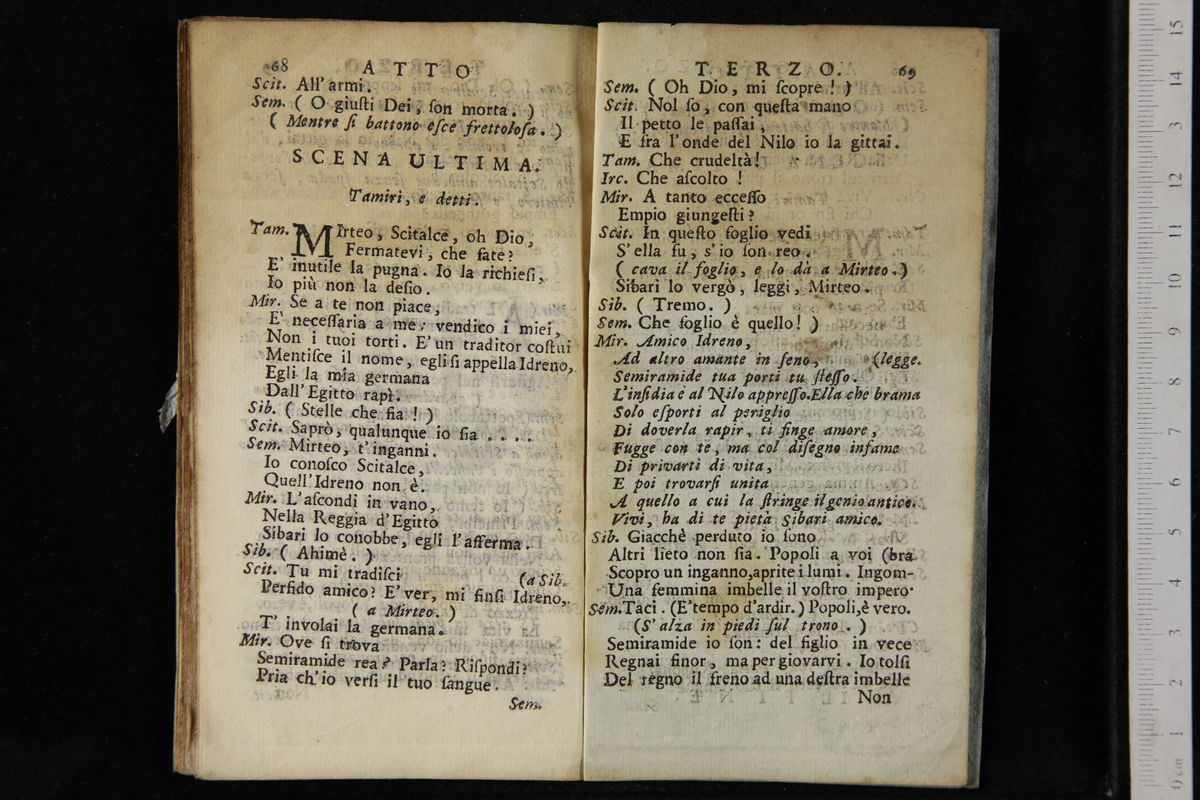 68 ATTO
Scit. All'armi.
Sem. ( O giuſti Dei, ſon morta. )
( Mentre ſi battono eſce frettoloſa. )
SCENA ULTIMA.
Tamiri, e detti.
Tam. MIrteo, Scitalce, oh Dio,
Fermatevi, che fate?
E' inutile la pugna. Io la richieſi,
Io più non la deſio.
Mir. Se a te non piace,
E' neceſſaria a me: vendico i miei,
Non i tuoi torti. E' un traditor coſtui
Mentiſce il nome, egli ſi appella Idreno,
Egli la mia germana
Dall'Egitto rapì.
Sib. ( Stelle che fia ! )
Scit. Saprò, qualunque io ſia . . . .
Sem. Mirteo, t'inganni.
Io conoſco Scitalce,
Quell'Idreno non è.
Mir. L'aſcondi in vano,
Nella Reggia d'Egitto
Sibari lo conobbe, egli l'afferma.
Sib. ( Ahimè. )
Scit. Tu mi tradiſci (a Sib.
Perfido amico? E' ver, mi finſi Idreno,
( a Mirteo. )
T' involai la germana.
Mir. Ove ſi trova
Semiramide rea? Parla? Riſpondi?
Pria ch'io verſi il tuo ſangue.
Sem.
TERZO. 69
Sem. ( Oh Dio, mi ſcopre ! )
Scit. Nol ſo, con queſta mano
Il petto le paſſai,
E fra l'onde del Nilo io la gittai.
Tam. Che crudeltà!
Irc. Che aſcolto !
Mir. A tanto ecceſſo
Empio giungeſti?
Scit. In queſto foglio vedi
S'ella fu, s'io ſon reo.
( cava il foglio, e lo dà a Mirteo. )
Sibari lo vergò, leggi, Mirteo.
Sib. ( Tremo. )
Sem. Che foglio è quello! )
Mir. Amico Idreno,
Ad altro amante in ſeno, (legge.
Semiramide tua porti tu ſteſſo.
L'inſidia è al Nilo appreſſo. Ella che brama
Solo eſporti al periglio
Di doverla rapir, ti finge amore,
Fugge con te, ma col diſegno infame
Di privarti di vita,
E poi trovarſi unita
A quello a cui la ſtringe il genio antico.
Vivi, ha di te pietà Sibari amico.
Sib. Giacchè perduto io ſono
Altri lieto non ſia. Popoli a voi (bra
Scopro un inganno, aprite i lumi. Ingom-
Una femmina imbelle il voſtro impero.
Sem. Taci. (E' tempo d'ardir. ) Popoli, è vero.
(S'alza in piedi ſul trono. )
Semiramide io ſon: del figlio in vece
Regnai finor, ma per giovarvi. Io tolſi
Del regno il freno ad una deſtra imbelle
Non
15
14
3
12
11
10
9
8
7
6
5
4
3
2
1
0 cm